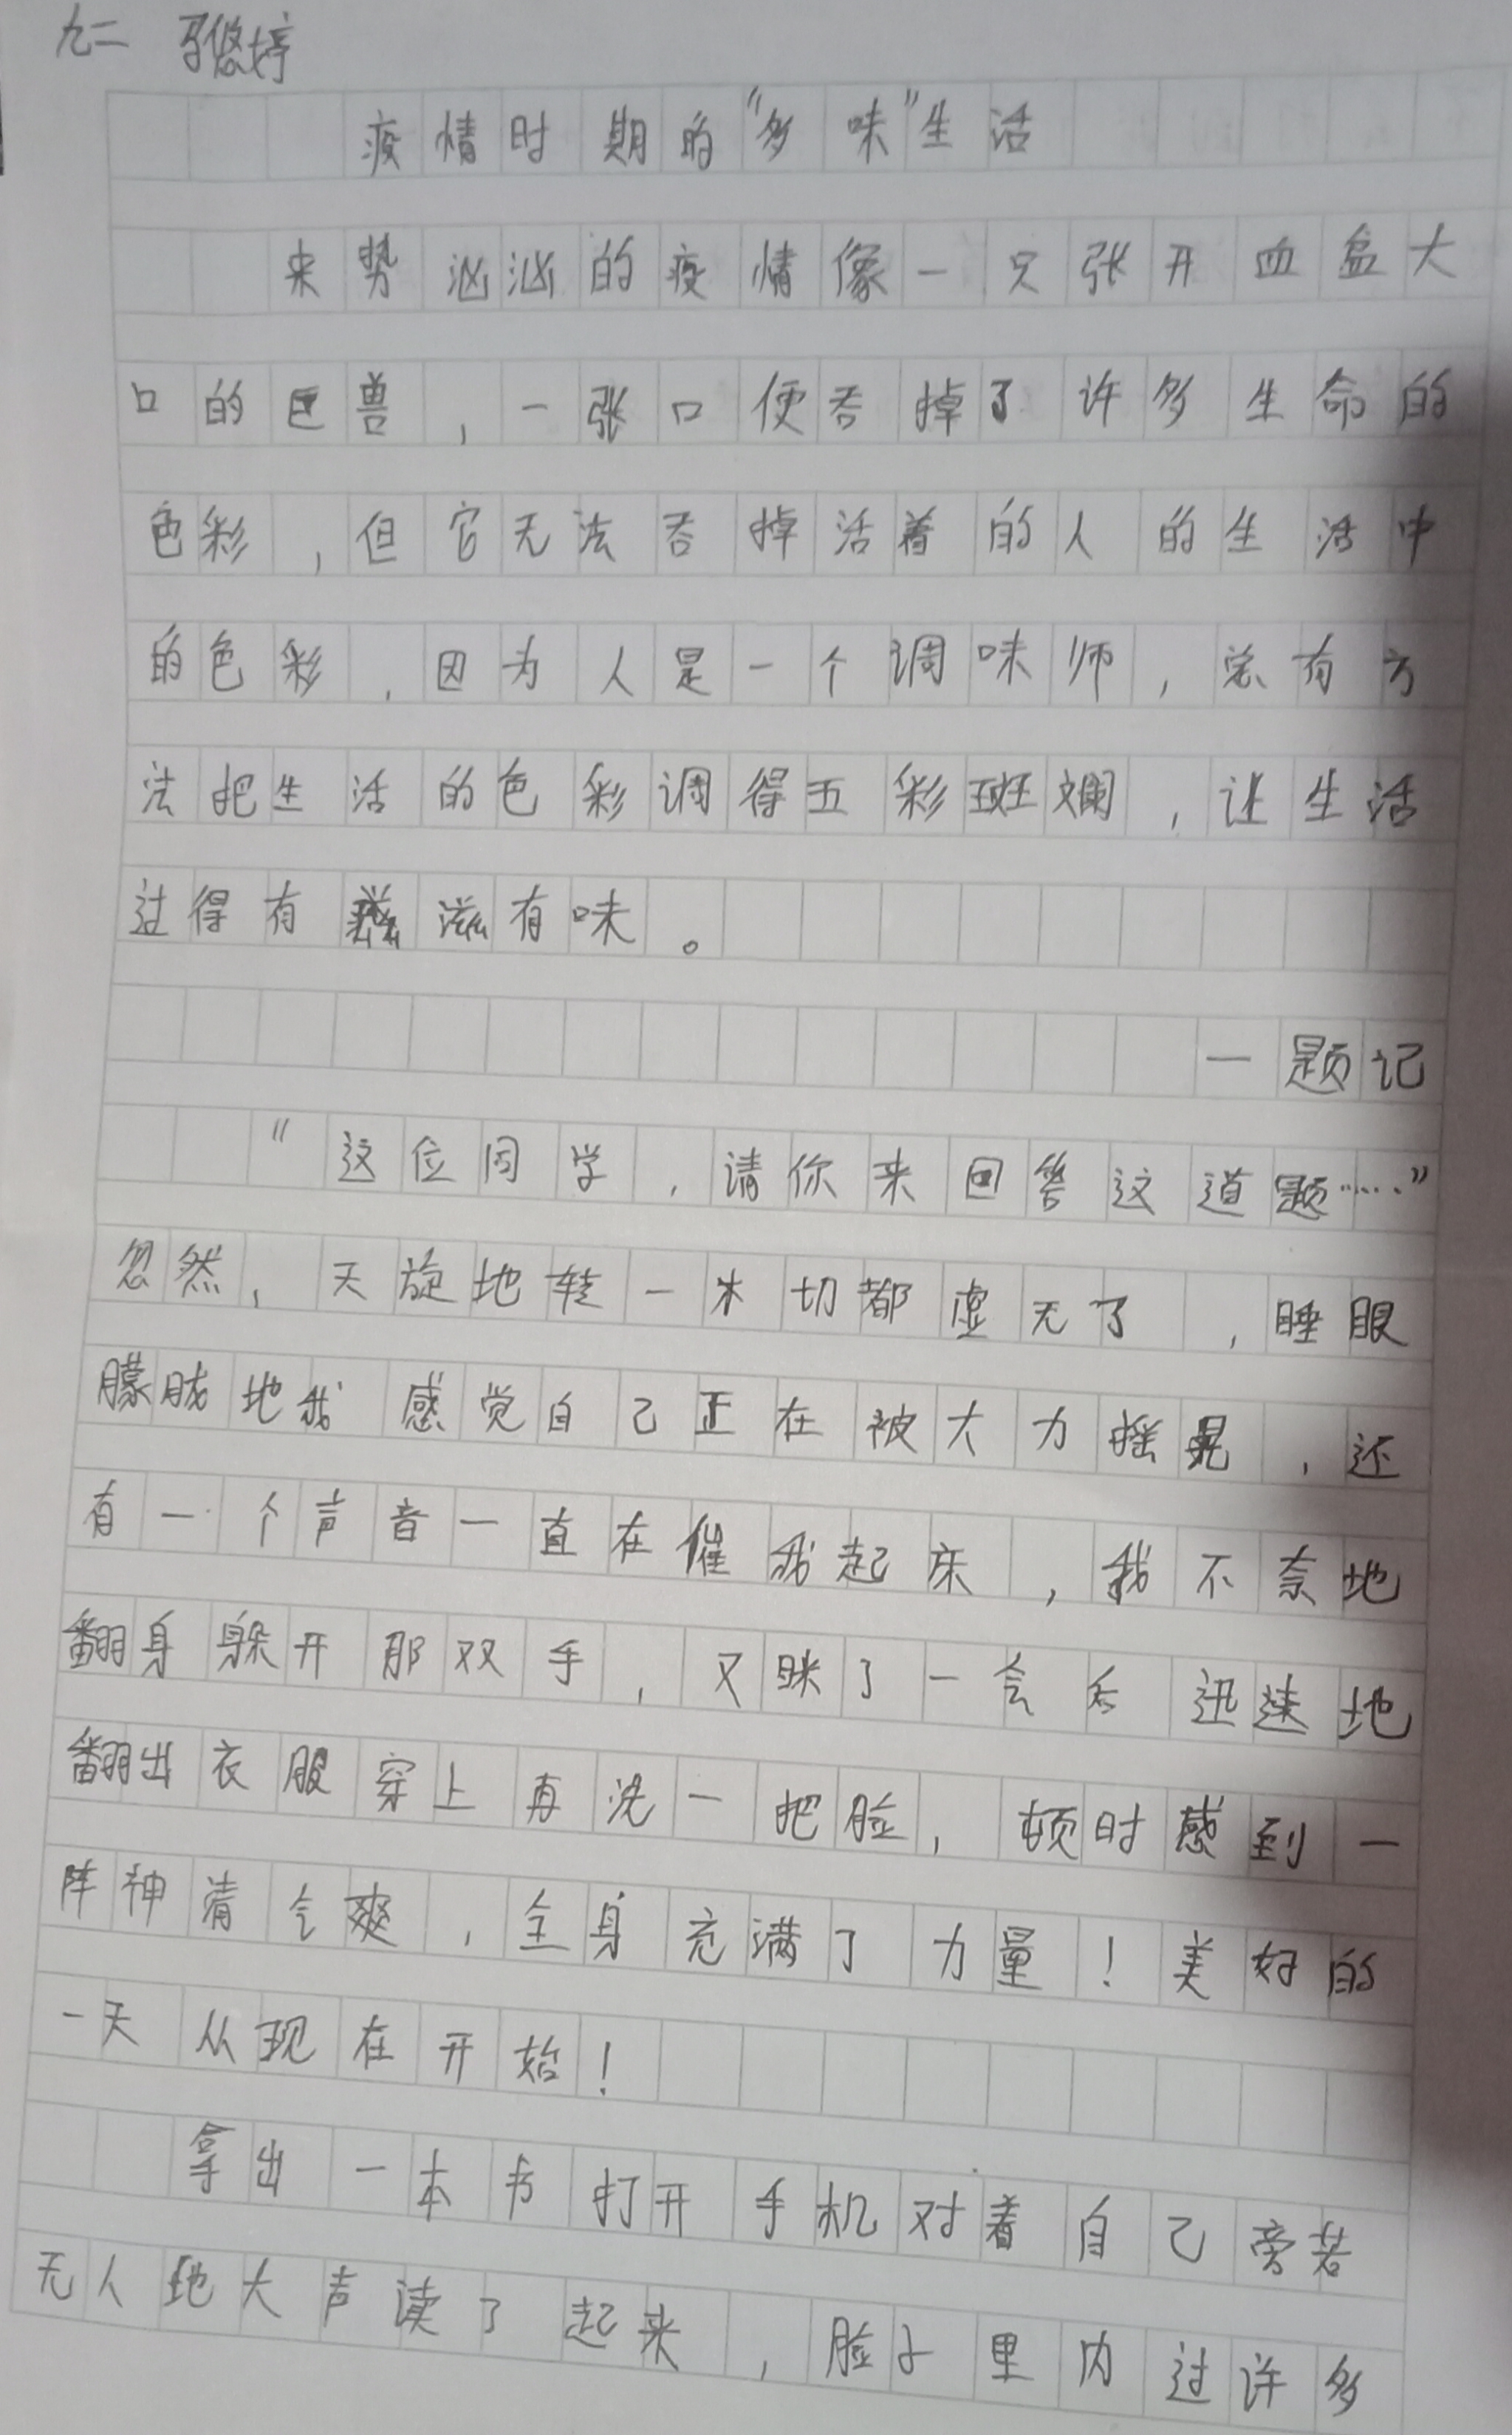 九二 悠婷
疫情时期的“多味”生活
来势汹汹的疫情像一只张开血盆大
口的巨兽，一张口便吞掉了许多生命的
色彩，但它无法吞掉活着的人的生活中
的色彩，因为人是一个调味师，总有方
法把生活的色彩调得五彩斑斓，让生活
过得有滋有味。
一题记
“这位同学，请你来回答这道题……”
忽然，天旋地转一木切都虚无了，睡眼
朦胧地我感觉自己正在被大力摇晃，还
有一个声音一直在催我起床，我不奈地
翻身躲开那双手，又眯了一会后迅速地
翻出衣服穿上再洗一把脸，顿时感到一
阵神清气爽，全身充满了力量！美好的
一天从现在开始！
拿出一本书打开手机对着自己旁若
无人地大声读了起来，脸子里内过许多